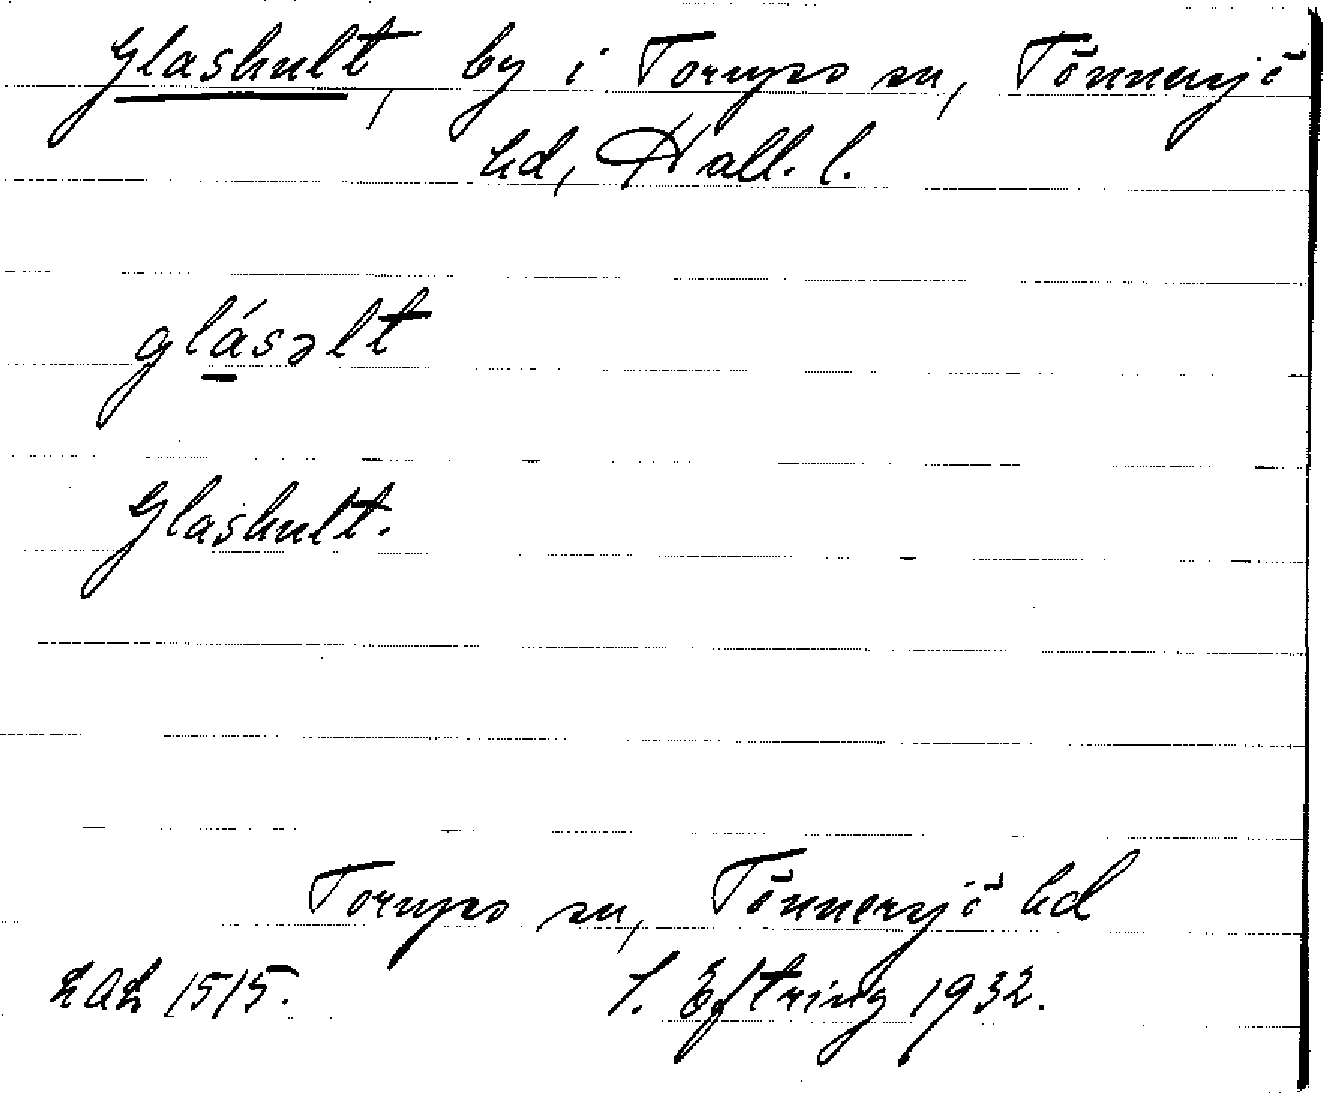 Glashult, by i Torups sn, Tönnersjö
hd, Hall. l.
glásəlt
Glashult.
Torups sn, Tönnersjö hd
LAL 1515. S. Eftring 1932.